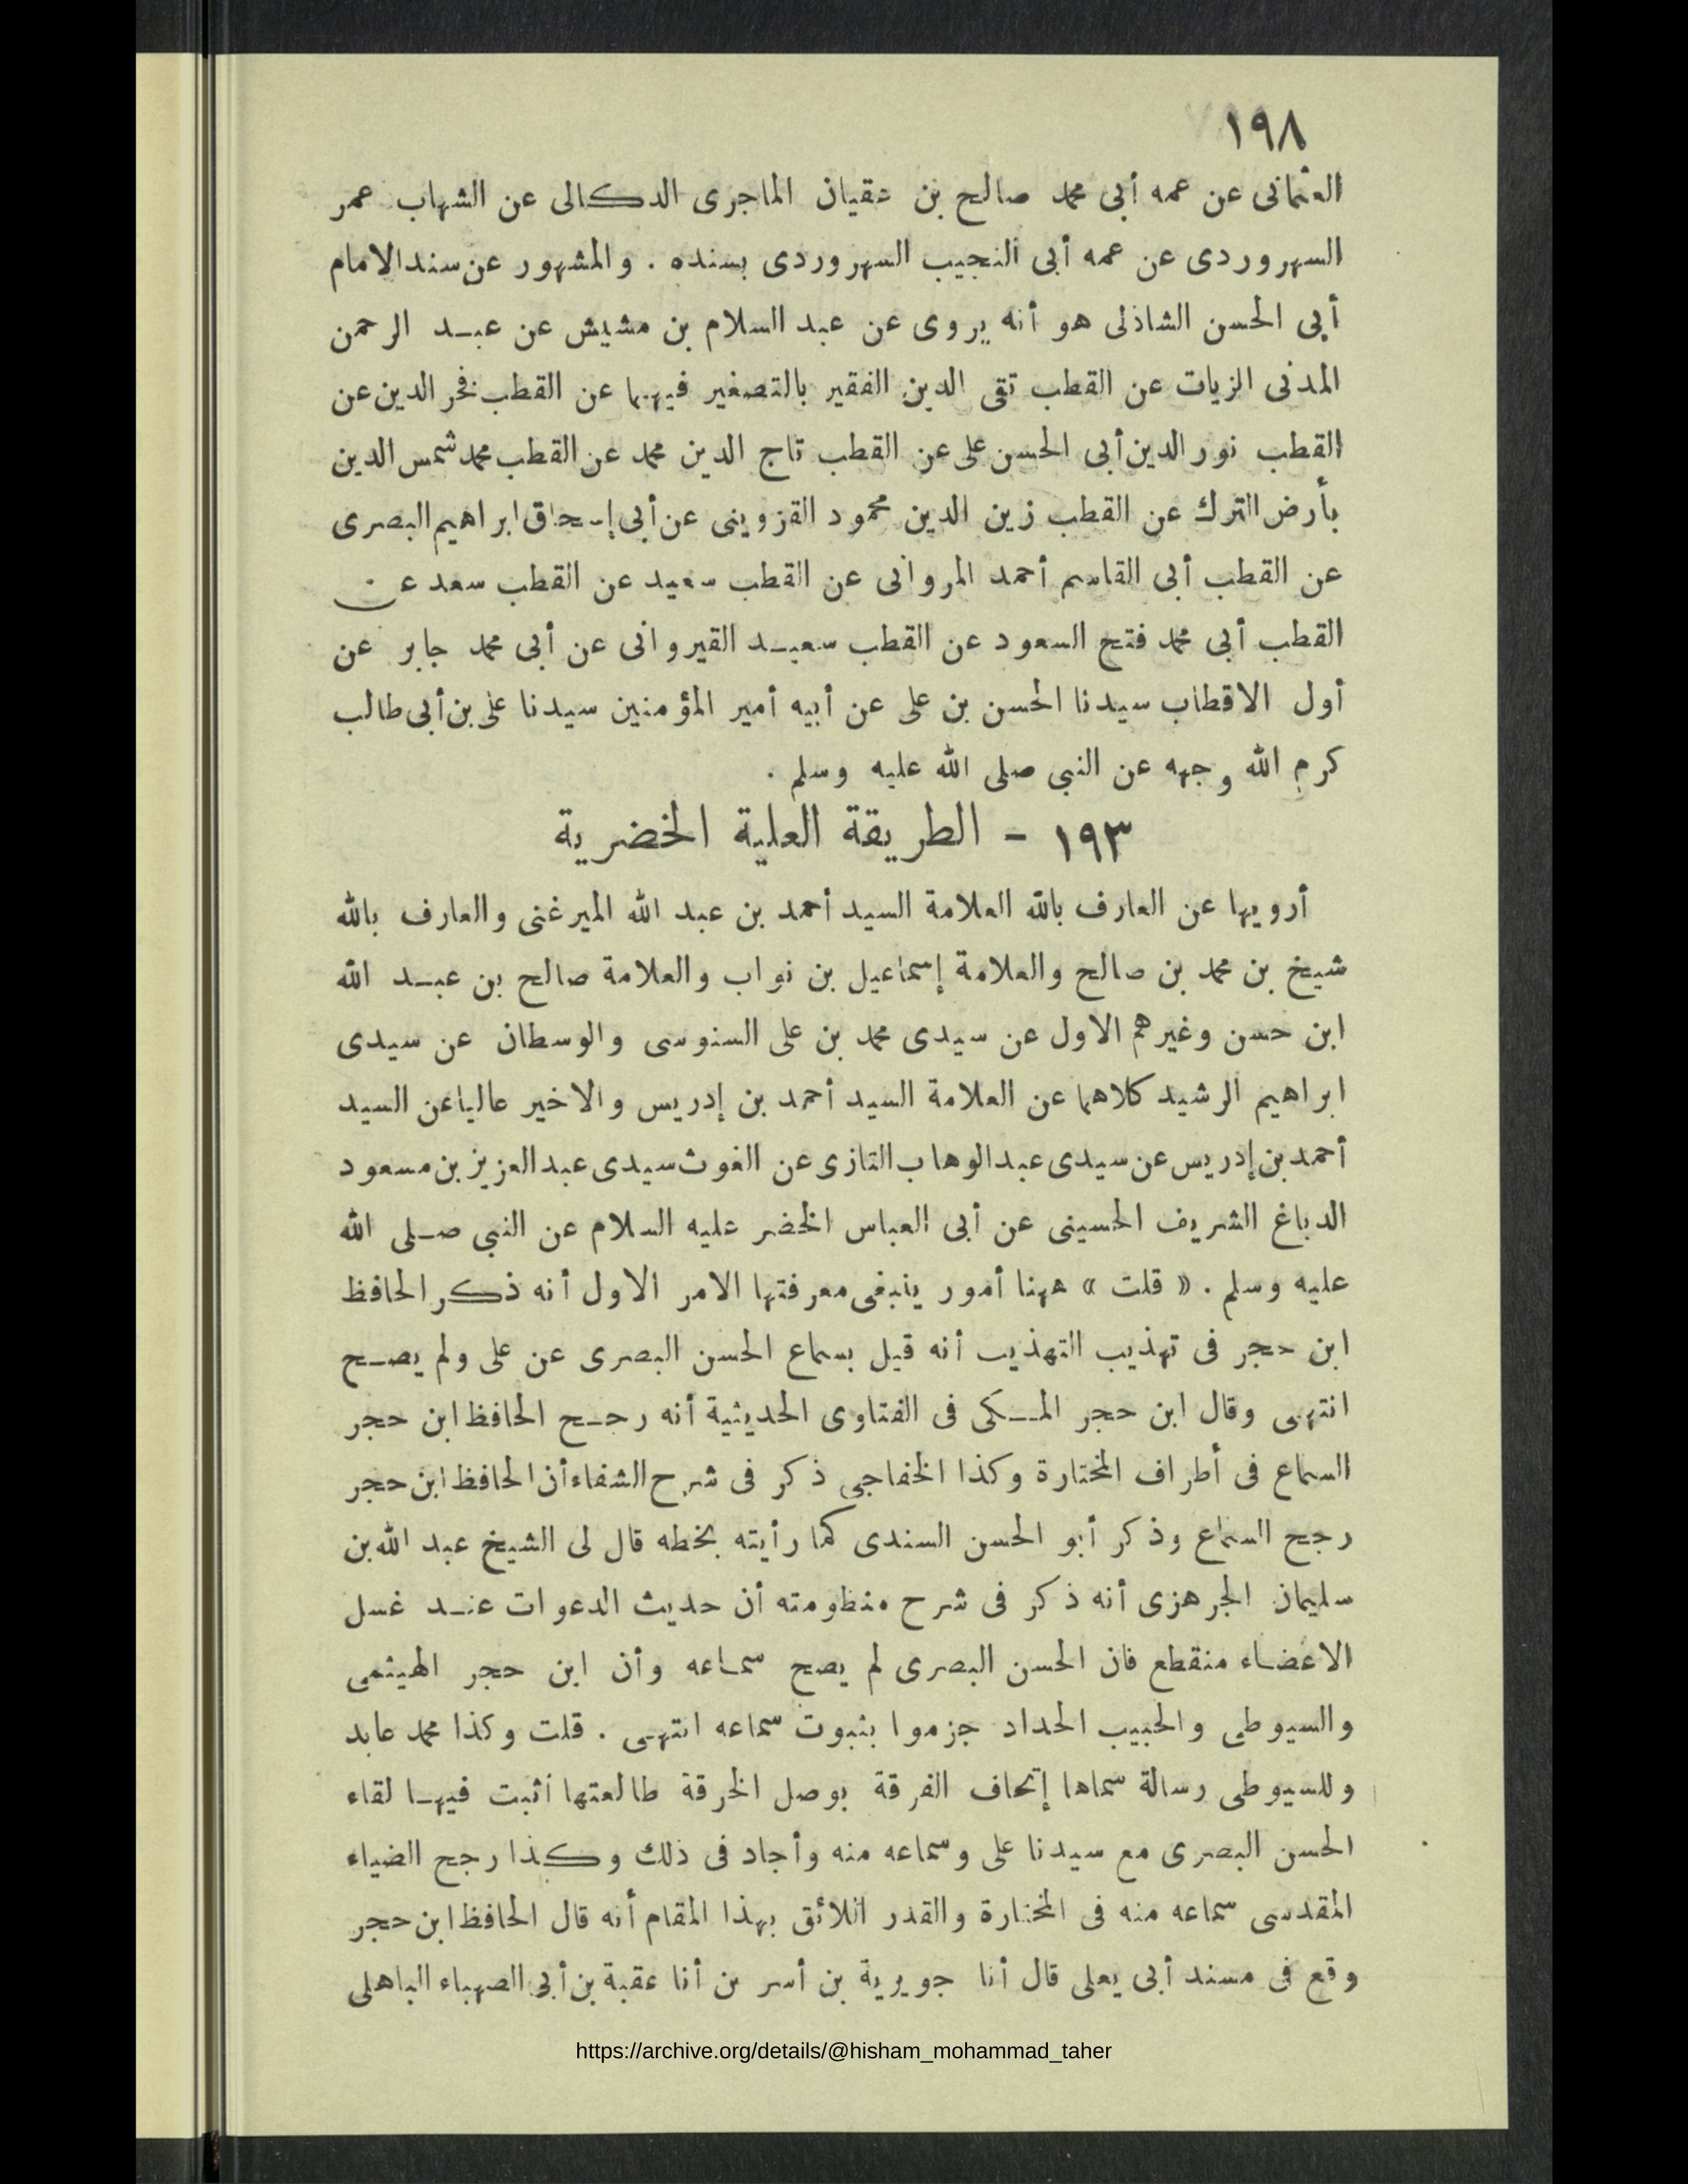 ١٩٨
العثمانى عن عمه أبى محمد صالح بن عقيان الماجرى الدكالى عن الشهاب عمر
السهروردى عن عمه أبى النجيب السهروردى بسنده . والمشهور عن سند الامام
أبى الحسن الشاذلى هو أنه يروى عن عبد السلام بن مشيش عن عبد الرحمن
المدنى الزيات عن القطب تقى الدين الفقير بالتصغير فيهما عن القطب فخر الدين عن
القطب نور الدين أبى الحسن على عن القطب تاج الدين محمد عن القطب محمد شمس الدين
بأرض الترك عن القطب زين الدين محمود القزوينى عن أبى إسحاق ابراهيم البصرى
عن القطب أبى القاسم أحمد المروانى عن القطب سعيد عن القطب سعد عن
القطب أبى محمد فتح السعود عن القطب سعيد القيروانى عن أبى محمد جابر عن
أول الاقطاب سيدنا الحسن بن على عن أبيه أمير المؤمنين سيدنا على بن أبى طالب
كرم الله وجهه عن النبى صلى الله عليه وسلم .
١٩٣ - الطريقة العلية الخضرية
أرويها عن العارف بالله العلامة السيد أحمد بن عبد الله الميرغنى والعارف بالله
شيخ بن محمد بن صالح والعلامة إسماعيل بن نواب والعلامة صالح بن عبد الله
ابن حسن وغيرهم الاول عن سيدى محمد بن على السنوسى والوسطان عن سيدى
ابراهيم الرشيد كلاهما عن العلامة السيد أحمد بن إدريس والاخير عاليا عن السيد
أحمد بن إدريس عن سيدى عبد الوهاب التازى عن الغوث سيدى عبد العزيز بن مسعود
الدباغ الشريف الحسينى عن أبى العباس الخضر عليه السلام عن النبى صلى الله
عليه وسلم . « قلت » ههنا أمور ينبغى معرفتها الامر الاول أنه ذكر الحافظ
ابن حجر فى تهذيب التهذيب أنه قيل بسماع الحسن البصرى عن على ولم يصح
انتهى وقال ابن حجر المكى فى الفتاوى الحديثية أنه رجح الحافظ ابن حجر
السماع فى أطراف المختارة وكذا الخفاجى ذكر فى شرح الشفاء أن الحافظ ابن حجر
رجح السماع وذكر أبو الحسن السندى كما رأيته بخطه قال لى الشيخ عبد الله بن
سليمان الجرهزى أنه ذكر فى شرح منظومته أن حديث الدعوات عند غسل
الاعضاء منقطع فان الحسن البصرى لم يصح سماعه وأن ابن حجر الهيثمى
والسيوطى والحبيب الحداد جزموا بثبوت سماعه انتهى . قلت وكذا محمد عابد
وللسيوطى رسالة سماها إتحاف الفرقة بوصل الخرقة طالعتها أثبت فيها لقاء
الحسن البصرى مع سيدنا على وسماعه منه وأجاد فى ذلك وكذا رجح الضياء
المقدسى سماعه منه فى المختارة والقدر اللائق بهذا المقام أنه قال الحافظ ابن حجر
وقع فى مسند أبى يعلى قال أنا جويرية بن أسر من أنا عقبة بن أبى الصهباء الباهلى
https://archive.org/details/@hisham_mohammad_taher